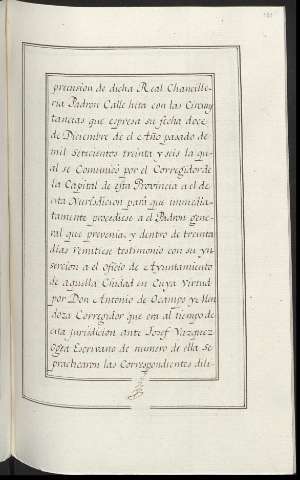 prension de dicha Real Chancille-
ria Padron Calle hita con las Circuns
tancias que espresa su fecha doce
de Diciembre de el Año pasado de
mil Setecientos treinta y seis la qu
al se Comunicó por el Corregidor de
la Capital de esta Provincia a el de
esta Nurisdicion para que inmedia-
tamente procediese a el Padron gene-
ral que prevenia y dentro de treinta
dias remitiese testimonio con su yn
sercion a el oficio de Ayuntamiento
de aquella Ciudad en Cuya Virtud
por Don Antonio de Ocampo y Men
doza Corregidor que era al tiempo de
esta jurisdicion ante Josef Vazquez
Escrivano de numero de ella se
practicaron las Correspondientes dili-